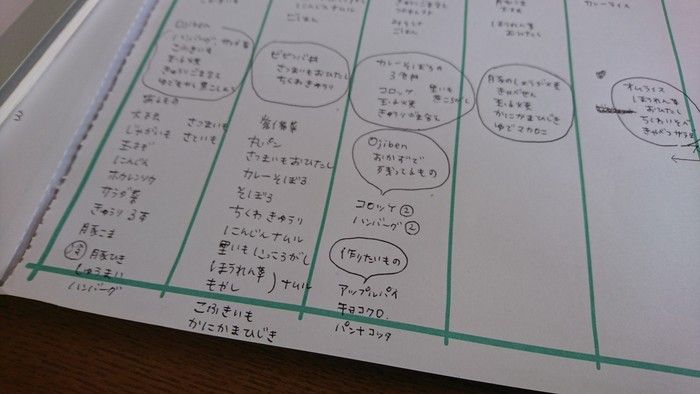 にんじんナムル
ごはん
ごはん
ほうれん草
カレーライス
Ojiben
ハンバーグ、サラダ菜
こふきいも
玉子焼
きゅうりごまあえ
ゆでもやし
ビビンバ丼
さつまいもおひたし
ちくわきゅうり
カレーそぼろの
3色丼
コロッケ
里いも
煮ころがし
玉子焼
きゅうりのまると
豚のしょうが焼
キャベせん
玉子焼
かにかまひじき
ゆでマカロニ
オムライス
ほうれん草
おひたし
ちくわいそべ
キャベツサラダ
3
大根
さつまいも
じゃがいも
さといも
玉ねぎ
にんじん
ホウレンソウ
サラダ菜
きゅうり3本
豚こま
冷 豚ひき
しゅうまい
ハンバーグ
常備菜
丸パン
さつまいもおひたし
カレーそぼろ
そぼろ
ちくわきゅうり
にんじんナムル
里いもにっころがし
ほうれん草
もやし
)ナムル
こふきいも
かにかまひじき
Ojiben
おかずで
残ってるもの
コロッケ②
ハンバーグ②
作りたいもの
アップルパイ
チョコクロ.
パンナコッタ